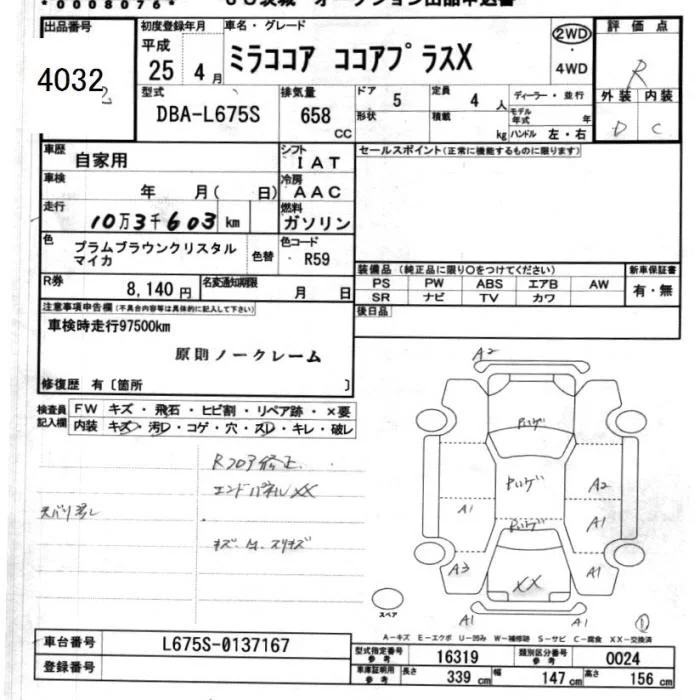 *0008076*
JU茨城 オークション出品申込書
出品番号 初度登録年月 車名・グレード 評価点
4032
平成 25年 4月 ミラココア ココアプラスX 2WD 4WD R
型式 DBA-L675S 排気量 658 CC
ドア 5 定員 4人 ディーラー・並行
形状 積載 kg モデル年式 年 ハンドル 左・右
外装 内装
D C
車歴 自家用 シフト IAT
セールスポイント(正常に機能するものに限ります)
車検 年 月( 日) 冷房 AAC
走行 10万3千603km 燃料 ガソリン
色 プラムブラウンクリスタルマイカ 色替 色コード R59
R券 8,140円 名変通知期限 月 日
装備品(純正品に限り○をつけてください) 新車保証書
PS PW ABS エアB AW 有・無
SR ナビ TV カワ
後日品
注意事項申告欄(不具合内容等は具体的に記入して下さい)
車検時走行97500km
原則ノークレーム
修復歴 有〔箇所 〕
検査員記入欄 FW キズ・飛石・ヒビ割・リペア跡・×要
内装 キズ・汚レ・コゲ・穴・スレ・キレ・破レ
Rフロア修正
エンドパネルXX
スペアタイヤ無し
A2
ハゲ
ハゲ
A2
A1
ハゲ
A1
A3
XX
A1
A1 A1
スペア
①
A-キズ E-エクボ U-凹み W-補修跡 S-サビ C-腐食 XX-交換済
車台番号 L675S-0137167
型式指定番号 参考 16319 類別区分番号 参考 0024
登録番号
車庫証明用 参考 長さ 339cm 幅 147cm 高さ 156cm